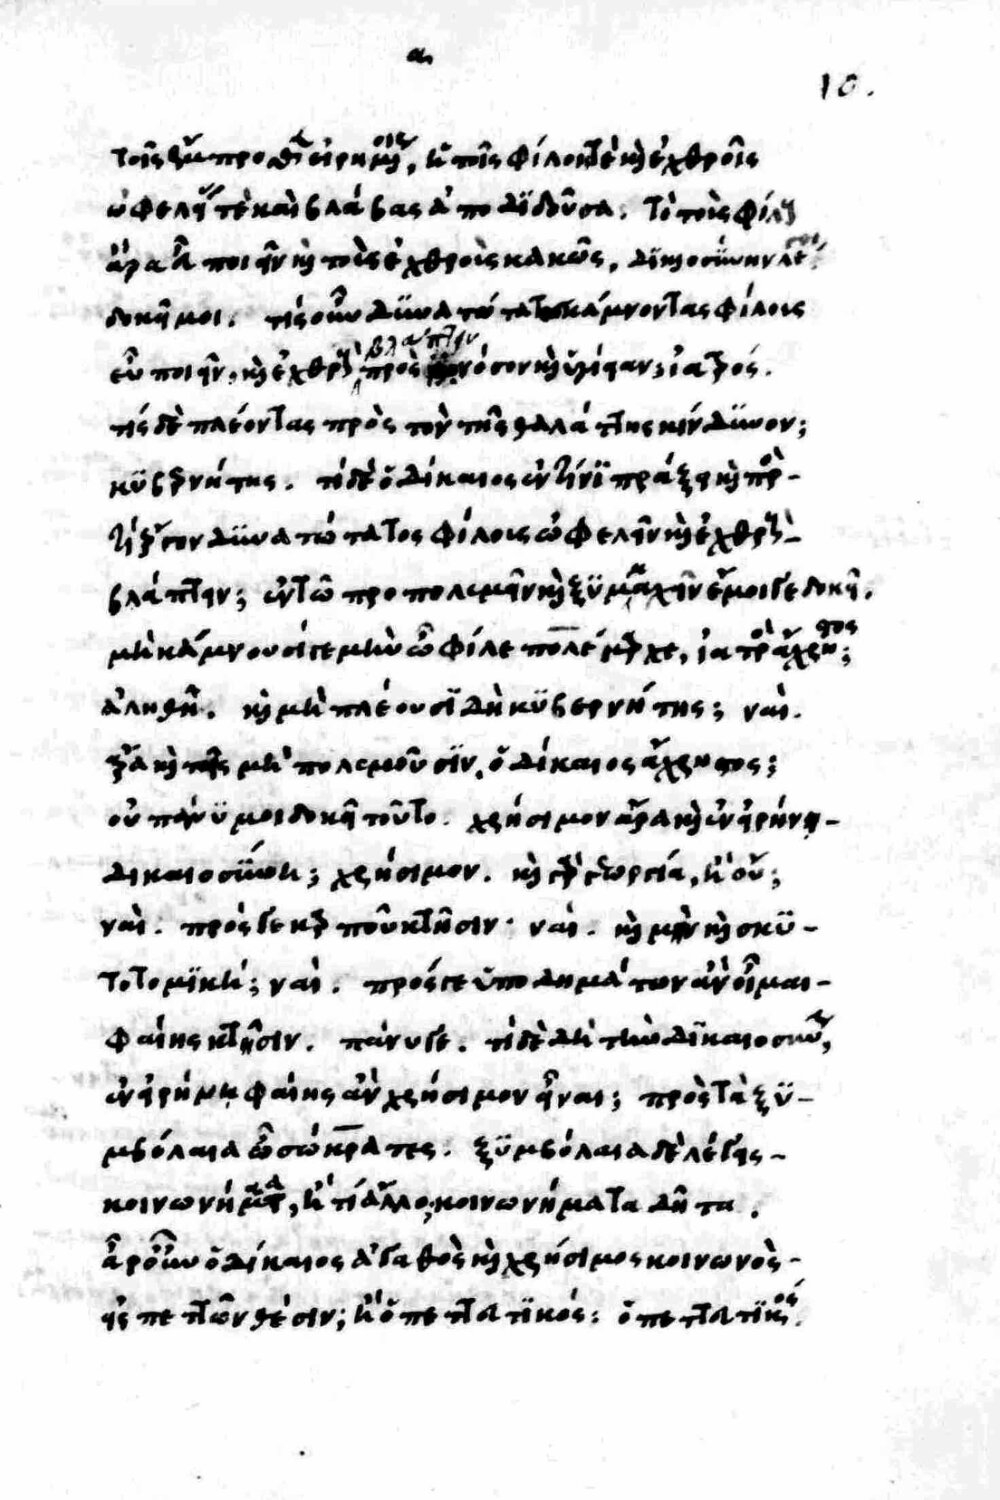 α
10.
τοῖς ἔμπροσθεν εἰρημένοις, ἡ τοῖς φίλοις τὲ καὶ ἐχθροῖς
ὠφελείας τὲ καὶ βλάβας ἀποδιδοῦσα: Τὸ τοὺς φίλους
ἄρα εὖ ποιεῖν καὶ τοὺς ἐχθροὺς κακῶς, δικαιοσύνην λέγει;
δοκεῖ μοι. τίς οὖν δυνατώτατος κάμνοντας φίλους
εὖ ποιεῖν, καὶ ἐχθροὺς βλάπτειν πρὸς νόσον καὶ ὑγίειαν; ἰατρός.
τίς δὲ πλέοντας πρὸς τὸν τῆς θαλάττης κίνδυνον;
κυβερνήτης. τί δὲ ὁ δίκαιος ἐν τίνι πράξει καὶ πρὸς
τί ἔργον δυνατώτατος φίλους ὠφελεῖν καὶ ἐχθροὺς
βλάπτειν; ἐν τῷ προπολεμεῖν καὶ ξυμμαχεῖν ἔμοιγε δοκεῖ.
μὴ κάμνουσί γε μὴν ὦ φίλε πολέμαρχε, ἰατρὸς ἄχρηστος;
ἀληθῆ. καὶ μὴ πλέουσι δὴ κυβερνήτης; ναί.
ἆρα καὶ τοῖς μὴ πολεμοῦσιν, ὁ δίκαιος ἄχρηστος;
οὐ πάνυ μοι δοκεῖ τοῦτο. χρήσιμον ἄρα καὶ ἐν εἰρήνῃ
δικαιοσύνη; χρήσιμον. καὶ γὰρ γεωργία, ἢ οὔ;
ναί. πρός γε καρποῦ κτῆσιν· ναί. καὶ μὴν καὶ σκυ-
τοτομική; ναί. πρός γε ὑποδημάτων ἂν οἶμαι
φαίης κτῆσιν. πάνυ γε. τί δὲ δὴ τὴν δικαιοσύνην,
ἐν εἰρήνῃ φαίης ἂν χρήσιμον εἶναι; πρὸς τὰ ξυ-
μβόλαια ὦ σώκρατες. ξυμβόλαια δὲ λέγεις
κοινωνήματα, ἢ τί ἄλλο; κοινωνήματα δῆτα.
ἆρ' οὖν ὁ δίκαιος ἀγαθὸς καὶ χρήσιμος κοινωνὸς
εἰς πεττῶν θέσιν; ἢ ὁ πεττατικός: ὁ πεττατικός.